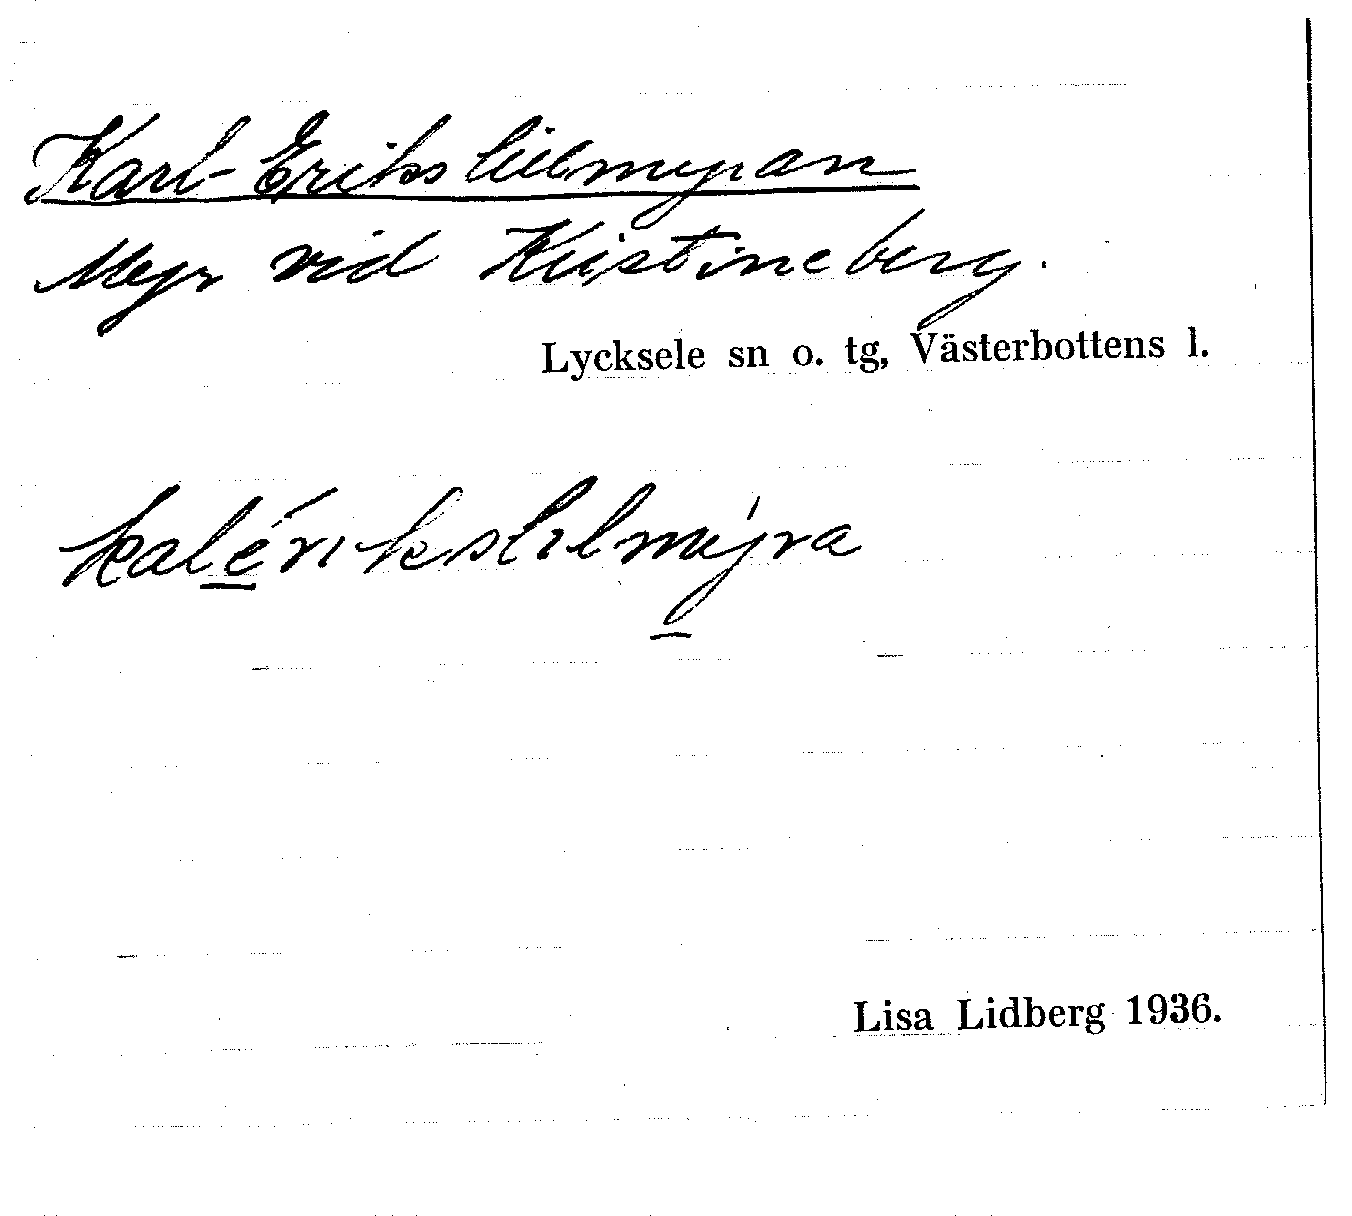 Karl-Erikslillmyran
Myr vid Kristineberg.
Lycksele sn o. tg, Västerbottens l.
kalérikslilmýra
Lisa Lidberg 1936.